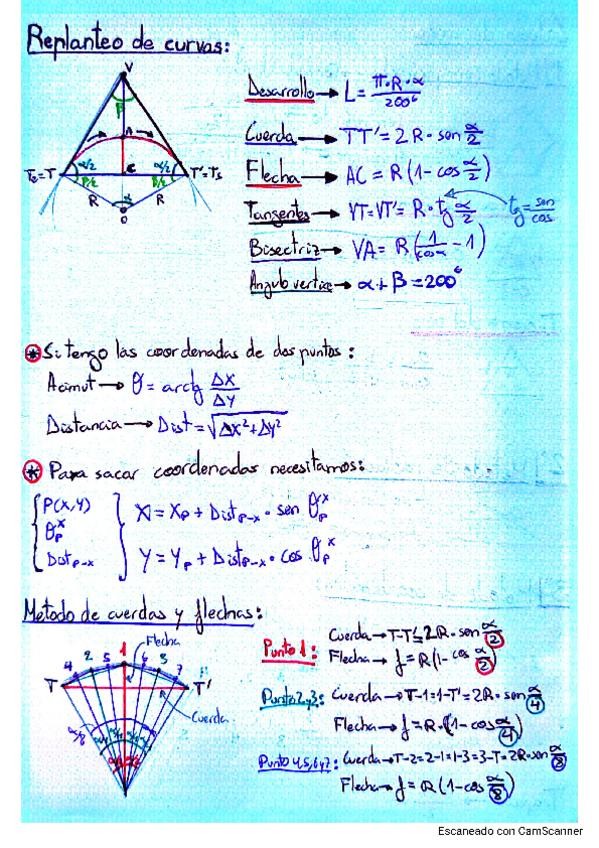 Replanteo de curvas:
V
β
A
α/2 α/2
Te=T β/2 C β/2 T'=Ts
R α R
O
Desarrollo → L = π·R·α / 200ᴳ
Cuerda → TT' = 2R·sen α/2
Flecha → AC = R(1-cos α/2)
Tangentes → VT=VT' = R·tg α/2 tg = sen/cos
Bisectriz → VA = R(1/cosα - 1)
Angulo vertice → α+β=200ᴳ
* Si tengo las coordenadas de dos puntos:
Acimut → θ = arctg ΔX/ΔY
Distancia → Dist = √ΔX²+ΔY²
* Para sacar coordenadas necesitamos:
P(X,Y)
θₚˣ
Distₚ₋ₓ
X = Xₚ + Distₚ₋ₓ · sen θₚˣ
Y = Yₚ + Distₚ₋ₓ · cos θₚˣ
Metodo de cuerdas y flechas:
Flecha
4 2 5 1 6 3 7
T T'
Cuerda
α/8
Punto 1: Cuerda → T-T'=2R·sen α/2
Flecha → f = R(1-cos α/2)
Punto 2y3: Cuerda → T-1=1-T'=2R·sen α/4
Flecha → f = R·(1-cos α/4)
Punto 4,5,6y7: Cuerda → T-2=2-1=1-3=3-T=2R·sen α/8
Flecha → f = R(1-cos α/8)
Escaneado con CamScanner